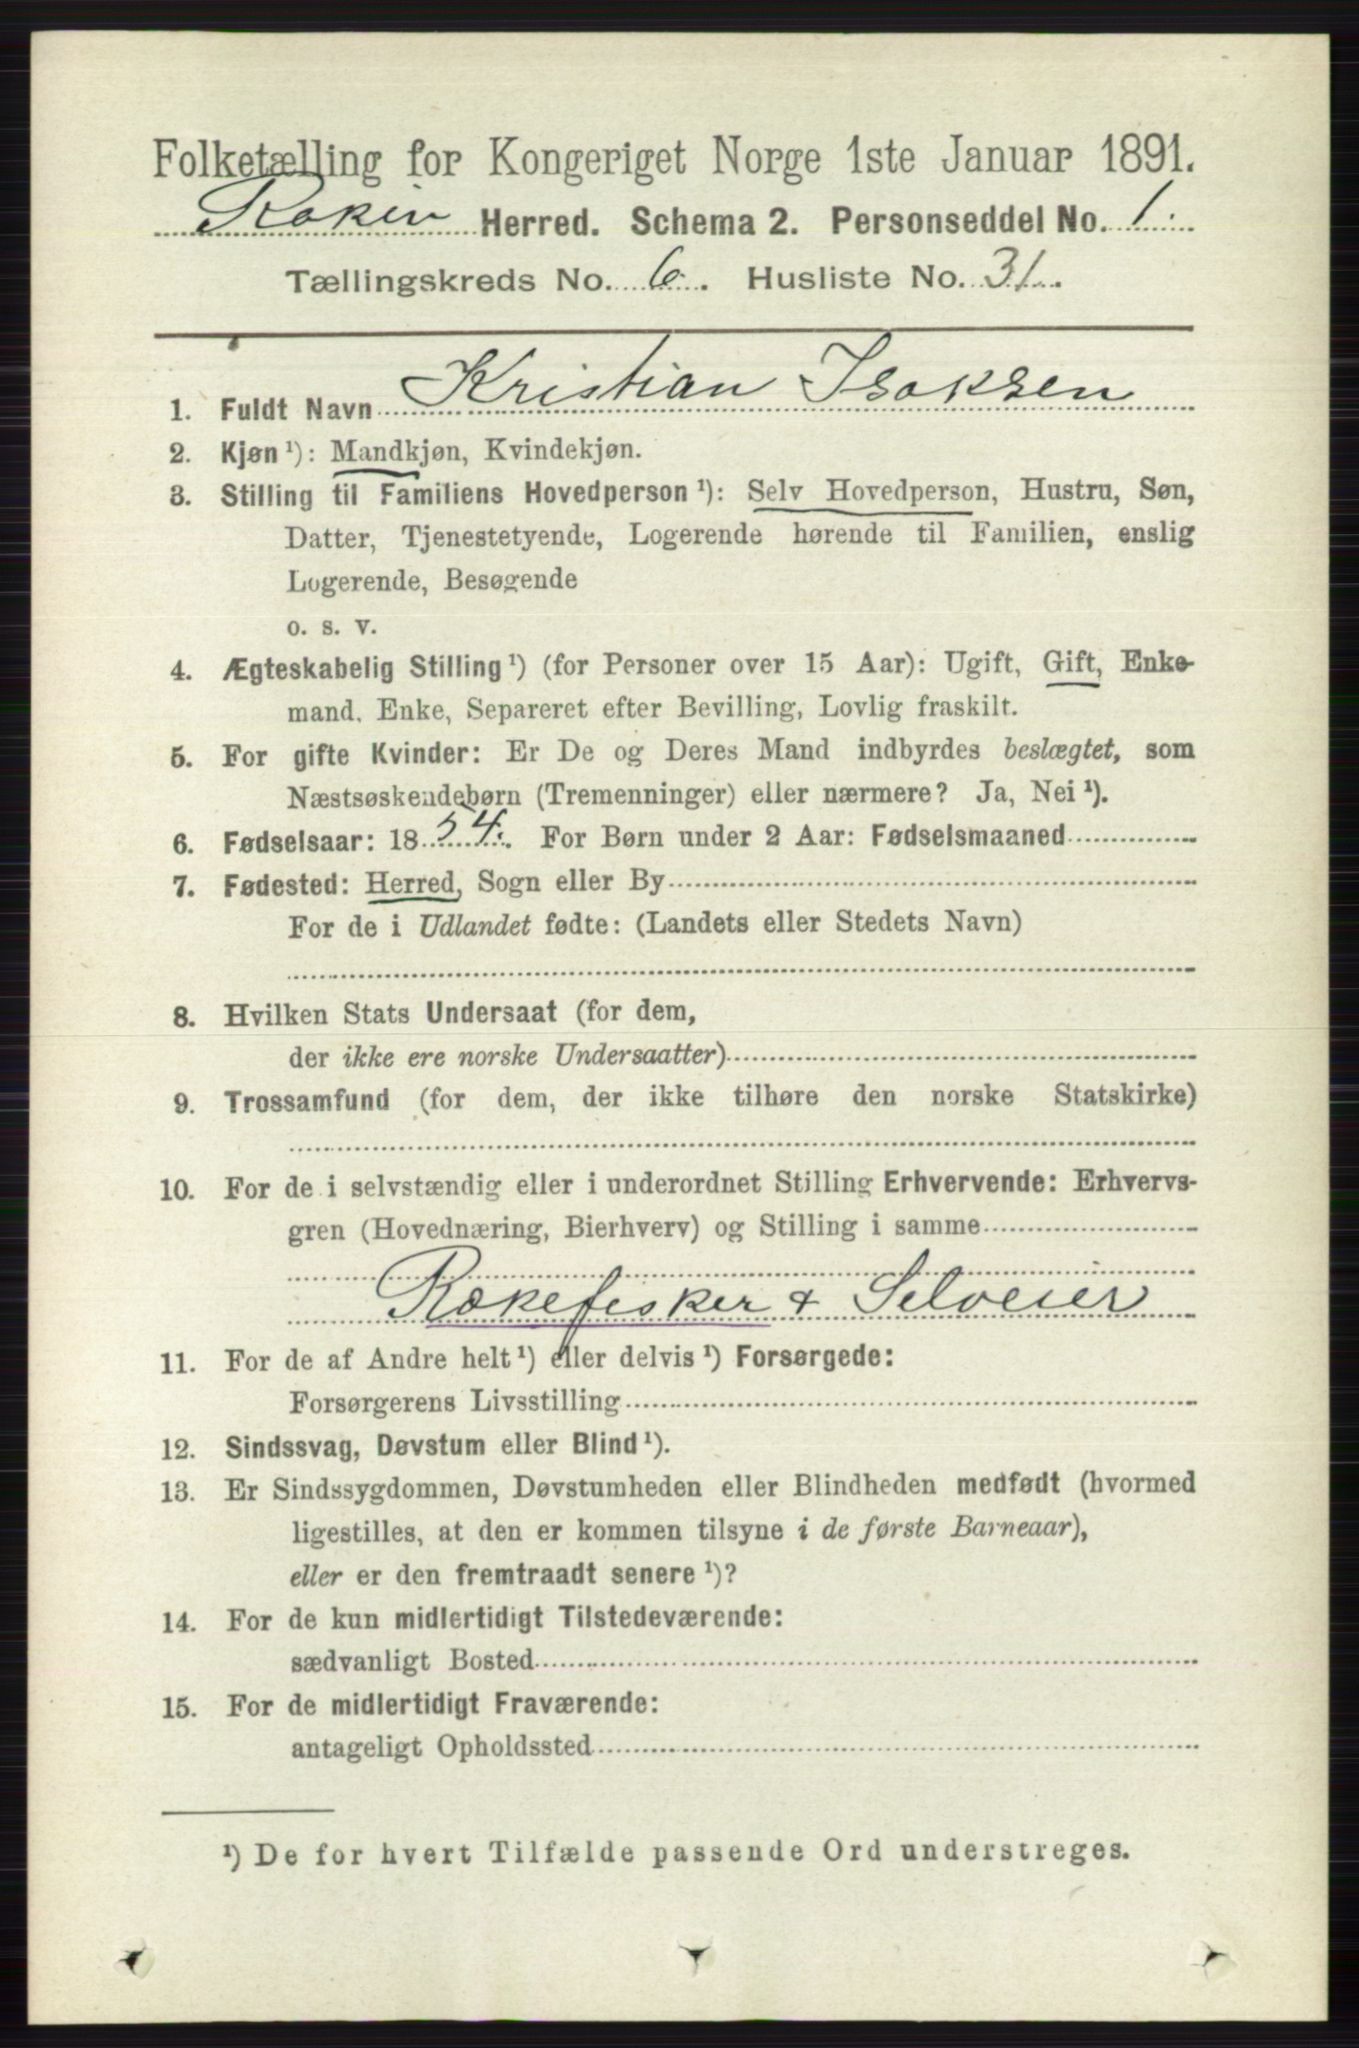 Folketælling for Kongeriget Norge 1ste Januar 1891.
Røken Herred. Schema 2. Personseddel No. 1.
Tællingskreds No. 6. Husliste No. 31.
1. Fuldt Navn Kristian Isaksen
2. Kjøn ¹): Mandkjøn, Kvindekjøn.
3. Stilling til Familiens Hovedperson ¹): Selv Hovedperson, Hustru, Søn,
Datter, Tjenestetyende, Logerende hørende til Familien, enslig
Logerende, Besøgende
o. s. v.
4. Ægteskabelig Stilling ¹) (for Personer over 15 Aar): Ugift, Gift, Enke-
mand, Enke, Separeret efter Bevilling, Lovlig fraskilt.
5. For gifte Kvinder: Er De og Deres Mand indbyrdes beslægtet, som
Næstsøskendebørn (Tremenninger) eller nærmere? Ja, Nei ¹).
6. Fødselsaar: 1854. For Børn under 2 Aar: Fødselsmaaned
7. Fødested: Herred, Sogn eller By
For de i Udlandet fødte: (Landets eller Stedets Navn)
8. Hvilken Stats Undersaat (for dem,
der ikke ere norske Undersaatter)
9. Trossamfund (for dem, der ikke tilhøre den norske Statskirke)
10. For de i selvstændig eller i underordnet Stilling Erhvervende: Erhvervs-
gren (Hovednæring, Bierhverv) og Stilling i samme
Rækefisker & Selveier
11. For de af Andre helt ¹) eller delvis ¹) Forsørgede:
Forsørgerens Livsstilling
12. Sindssvag, Døvstum eller Blind ¹).
13. Er Sindssygdommen, Døvstumheden eller Blindheden medfødt (hvormed
ligestilles, at den er kommen tilsyne i de første Barneaar),
eller er den fremtraadt senere ¹)?
14. For de kun midlertidigt Tilstedeværende:
sædvanligt Bosted
15. For de midlertidigt Fraværende:
antageligt Opholdssted
¹) De for hvert Tilfælde passende Ord understreges.